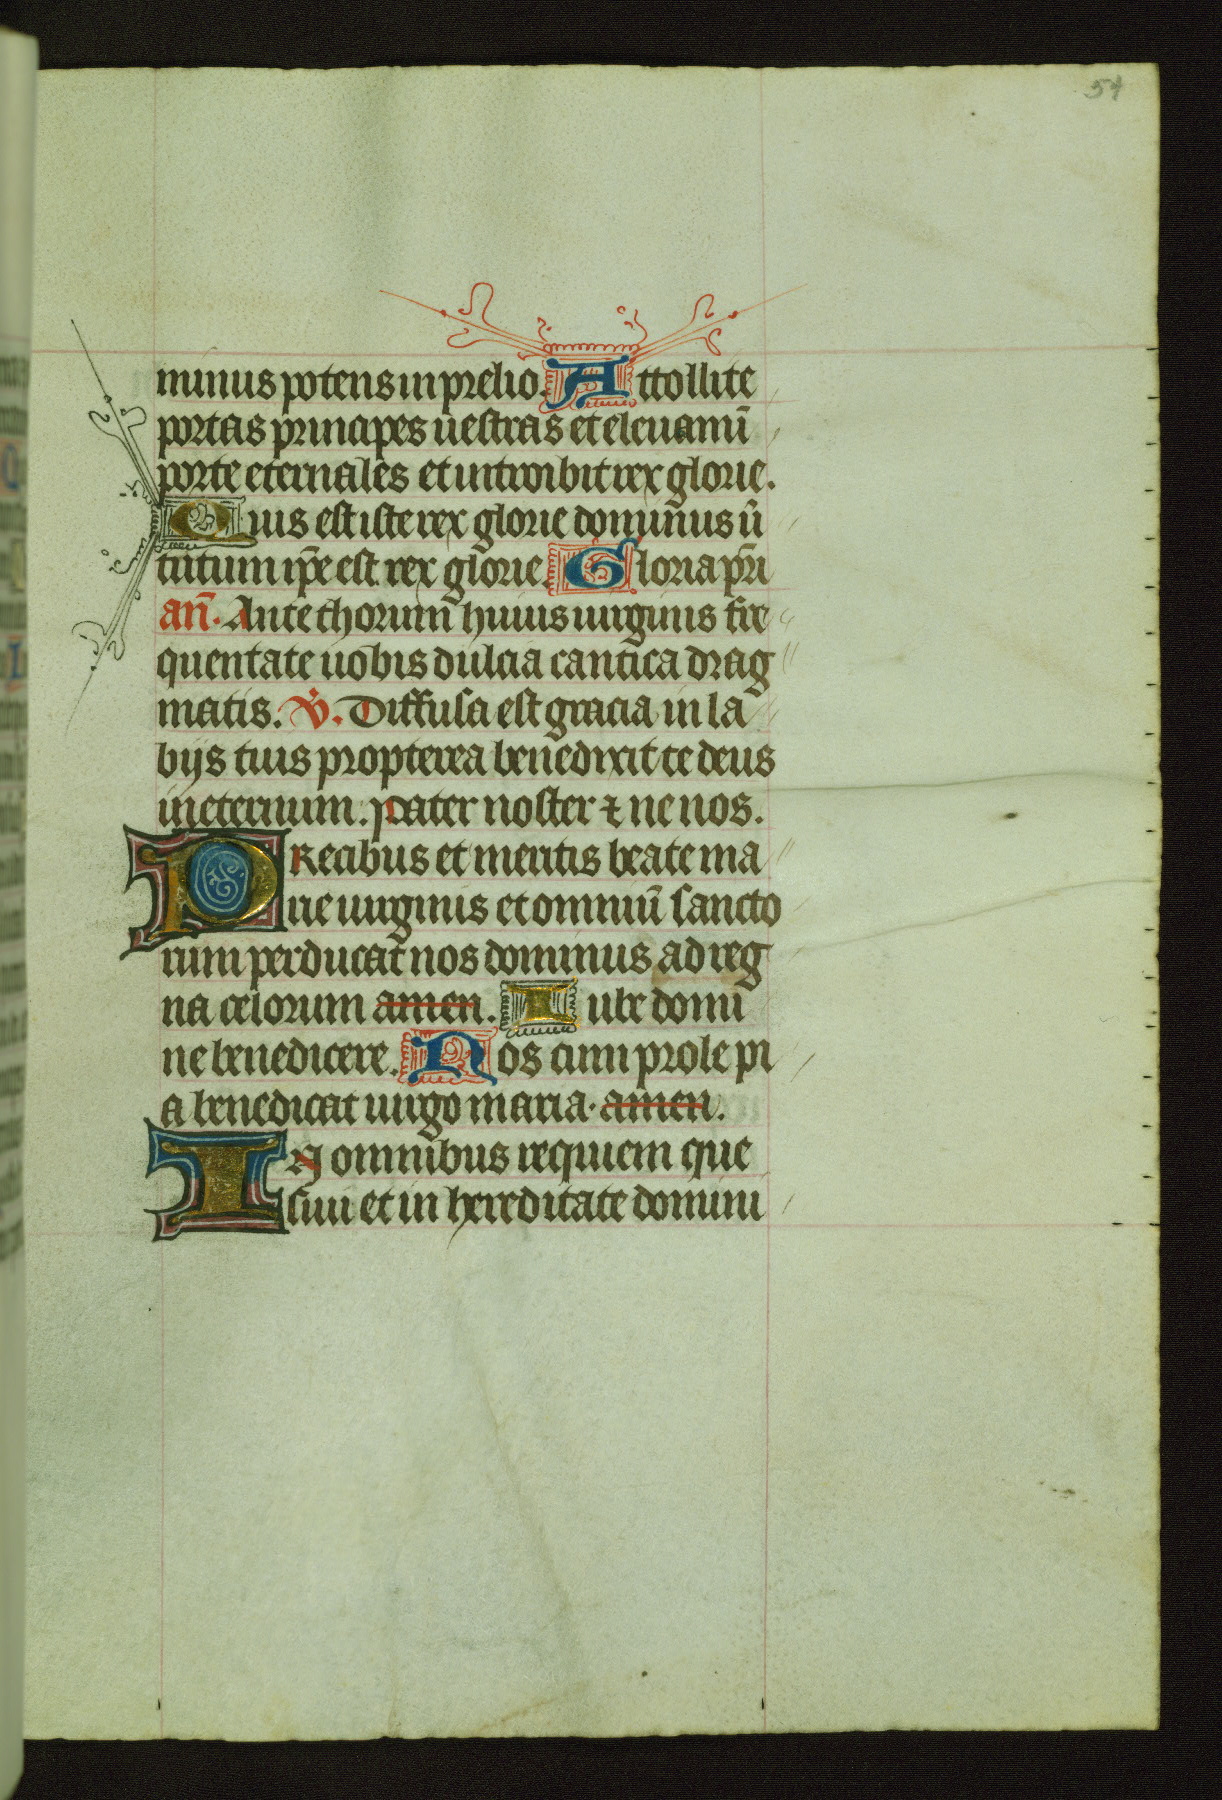 54
minus potens in prelio. Attollite
portas principes uestras et eleuamī
porte eternales et introibit rex glorie.
Quis est iste rex glorie dominus ū
tutum ip̄e est rex glorie. Gloria pr̄i
an̄. Ante thorum huius uirginis fre
quentate uobis dulcia cantica drag
matis. V̄. Diffusa est gracia in la
bijs tuis propterea benedixit te deus
in eternum. pater noster ⁊ ne nos.
PRecibus et meritis beate ma
rie uirginis et omniū sancto
rum perducat nos dominus ad reg
na celorum amen. Iube domi
ne benedicere. Nos cum prole pi
a benedicat uirgo maria. amen.
IN omnibus requiem que
siui et in hereditate domini